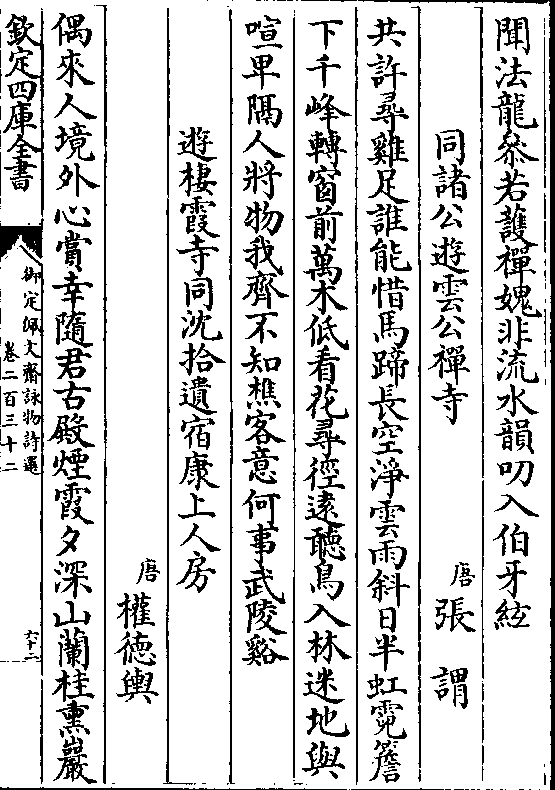 聞法龍叅若護禪媿非流水韻叨入伯牙絃
同諸公遊雲公禪寺
唐 張謂
共許尋雞足誰能惜馬蹄長空淨雲雨斜日半虹霓簷
下千峰轉窗前萬木低看花尋徑遠聽鳥入林迷地與
喧卑隔人將物我齊不知樵客意何事武陵谿
遊棲霞寺同沈拾遺宿康上人房
唐 權德輿
偶來人境外心賞幸隨君古殿煙霞夕深山蘭桂熏巖
欽定四庫全書
御定佩文齋詠物詩選
卷二百三十二
六十二